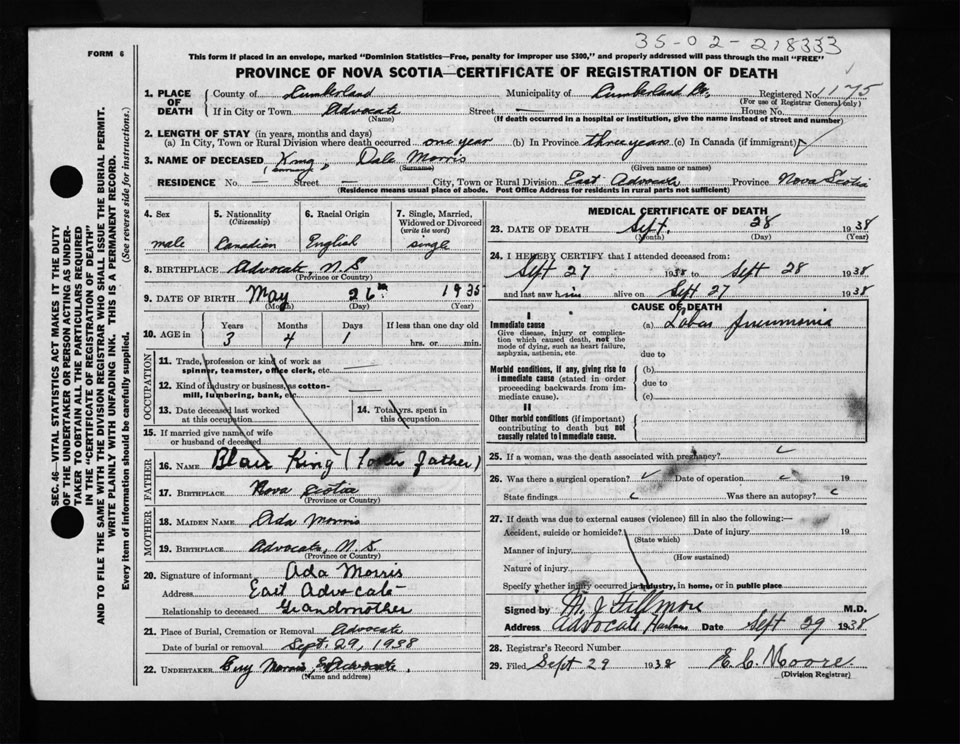 35-02-218333
FORM 6
This form if placed in an envelope, marked "Dominion Statistics—Free, penalty for improper use $300," and properly addressed will pass through the mail "FREE"
PROVINCE OF NOVA SCOTIA—CERTIFICATE OF REGISTRATION OF DEATH
1. PLACE OF DEATH County of Cumberland Municipality of Cumberland Co, Registered No. 1175
(For use of Registrar General only)
If in City or Town Advocate Street — House No.
(Name) (If death occurred in a hospital or institution, give the name instead of street and number)
2. LENGTH OF STAY (in years, months and days)
(a) In City, Town or Rural Division where death occurred one year (b) In Province three years (c) In Canada (if immigrant)
3. NAME OF DECEASED King, Dale Morris
(Surname) (Surname) (Given name or names)
RESIDENCE No. — Street — City, Town or Rural Division East Advocate Province Nova Scotia
(Residence means usual place of abode. Post Office Address for residents in rural parts not sufficient)
SEC. 46—VITAL STATISTICS ACT MAKES IT THE DUTY
OF THE UNDERTAKER OR PERSON ACTING AS UNDERTAKER
TO OBTAIN ALL THE PARTICULARS REQUIRED
IN THE "CERTIFICATE OF REGISTRATION OF DEATH"
AND TO FILE THE SAME WITH THE DIVISION REGISTRAR WHO SHALL ISSUE THE BURIAL PERMIT.
WRITE PLAINLY WITH UNFADING INK. THIS IS A PERMANENT RECORD.
Every item of information should be carefully supplied. (See reverse side for instructions.)
4. Sex male
5. Nationality (Citizenship) Canadian
6. Racial Origin English
7. Single, Married, Widowed or Divorced (write the word) single
8. BIRTHPLACE Advocate, N.S.
(Province or Country)
9. DATE OF BIRTH May 26th 1935
(Month) (Day) (Year)
10. AGE in Years 3 Months 4 Days 1 If less than one day old hrs. or min.
OCCUPATION
11. Trade, profession or kind of work as spinner, teamster, office clerk, etc. —
12. Kind of industry or business, as cotton-mill, lumbering, bank, etc. —
13. Date deceased last worked at this occupation
14. Total yrs. spent in this occupation
15. If married give name of wife or husband of deceased
FATHER
16. NAME Blair King (foster father)
17. BIRTHPLACE Nova Scotia
(Province or Country)
MOTHER
18. MAIDEN NAME Ada Morris
19. BIRTHPLACE Advocate, N.S.
(Province or Country)
20. Signature of informant Ada Morris
Address East Advocate
Relationship to deceased Grandmother
21. Place of Burial, Cremation or Removal Advocate
Date of burial or removal Sept. 29, 1938
22. UNDERTAKER Morris, E. Advocate
(Name and address)
MEDICAL CERTIFICATE OF DEATH
23. DATE OF DEATH Sept. 28 1938
(Month) (Day) (Year)
24. I HEREBY CERTIFY that I attended deceased from:
Sept 27 1938 to Sept 28 1938
and last saw him alive on Sept 27 1938
CAUSE OF DEATH
I
Immediate cause
Give disease, injury or complication which caused death, not the mode of dying, such as heart failure, asphyxia, asthenia, etc.
(a) Lobar pneumonia
due to
Morbid conditions, if any, giving rise to immediate cause (stated in order proceeding backwards from immediate cause).
(b)
due to
(c)
II
Other morbid conditions (if important) contributing to death but not causally related to immediate cause.
25. If a woman, was the death associated with pregnancy?
26. Was there a surgical operation? Date of operation 19
State findings Was there an autopsy?
27. If death was due to external causes (violence) fill in also the following:—
Accident, suicide or homicide? Date of injury 19
(State which)
Manner of injury
(How sustained)
Nature of injury
Specify whether injury occurred in industry, in home, or in public place
Signed by M. J. Fillmore M.D.
Address Advocate Harbor Date Sept 29 1938
28. Registrar's Record Number
29. Filed Sept 29 1938 E. C. Moore.
(Division Registrar)